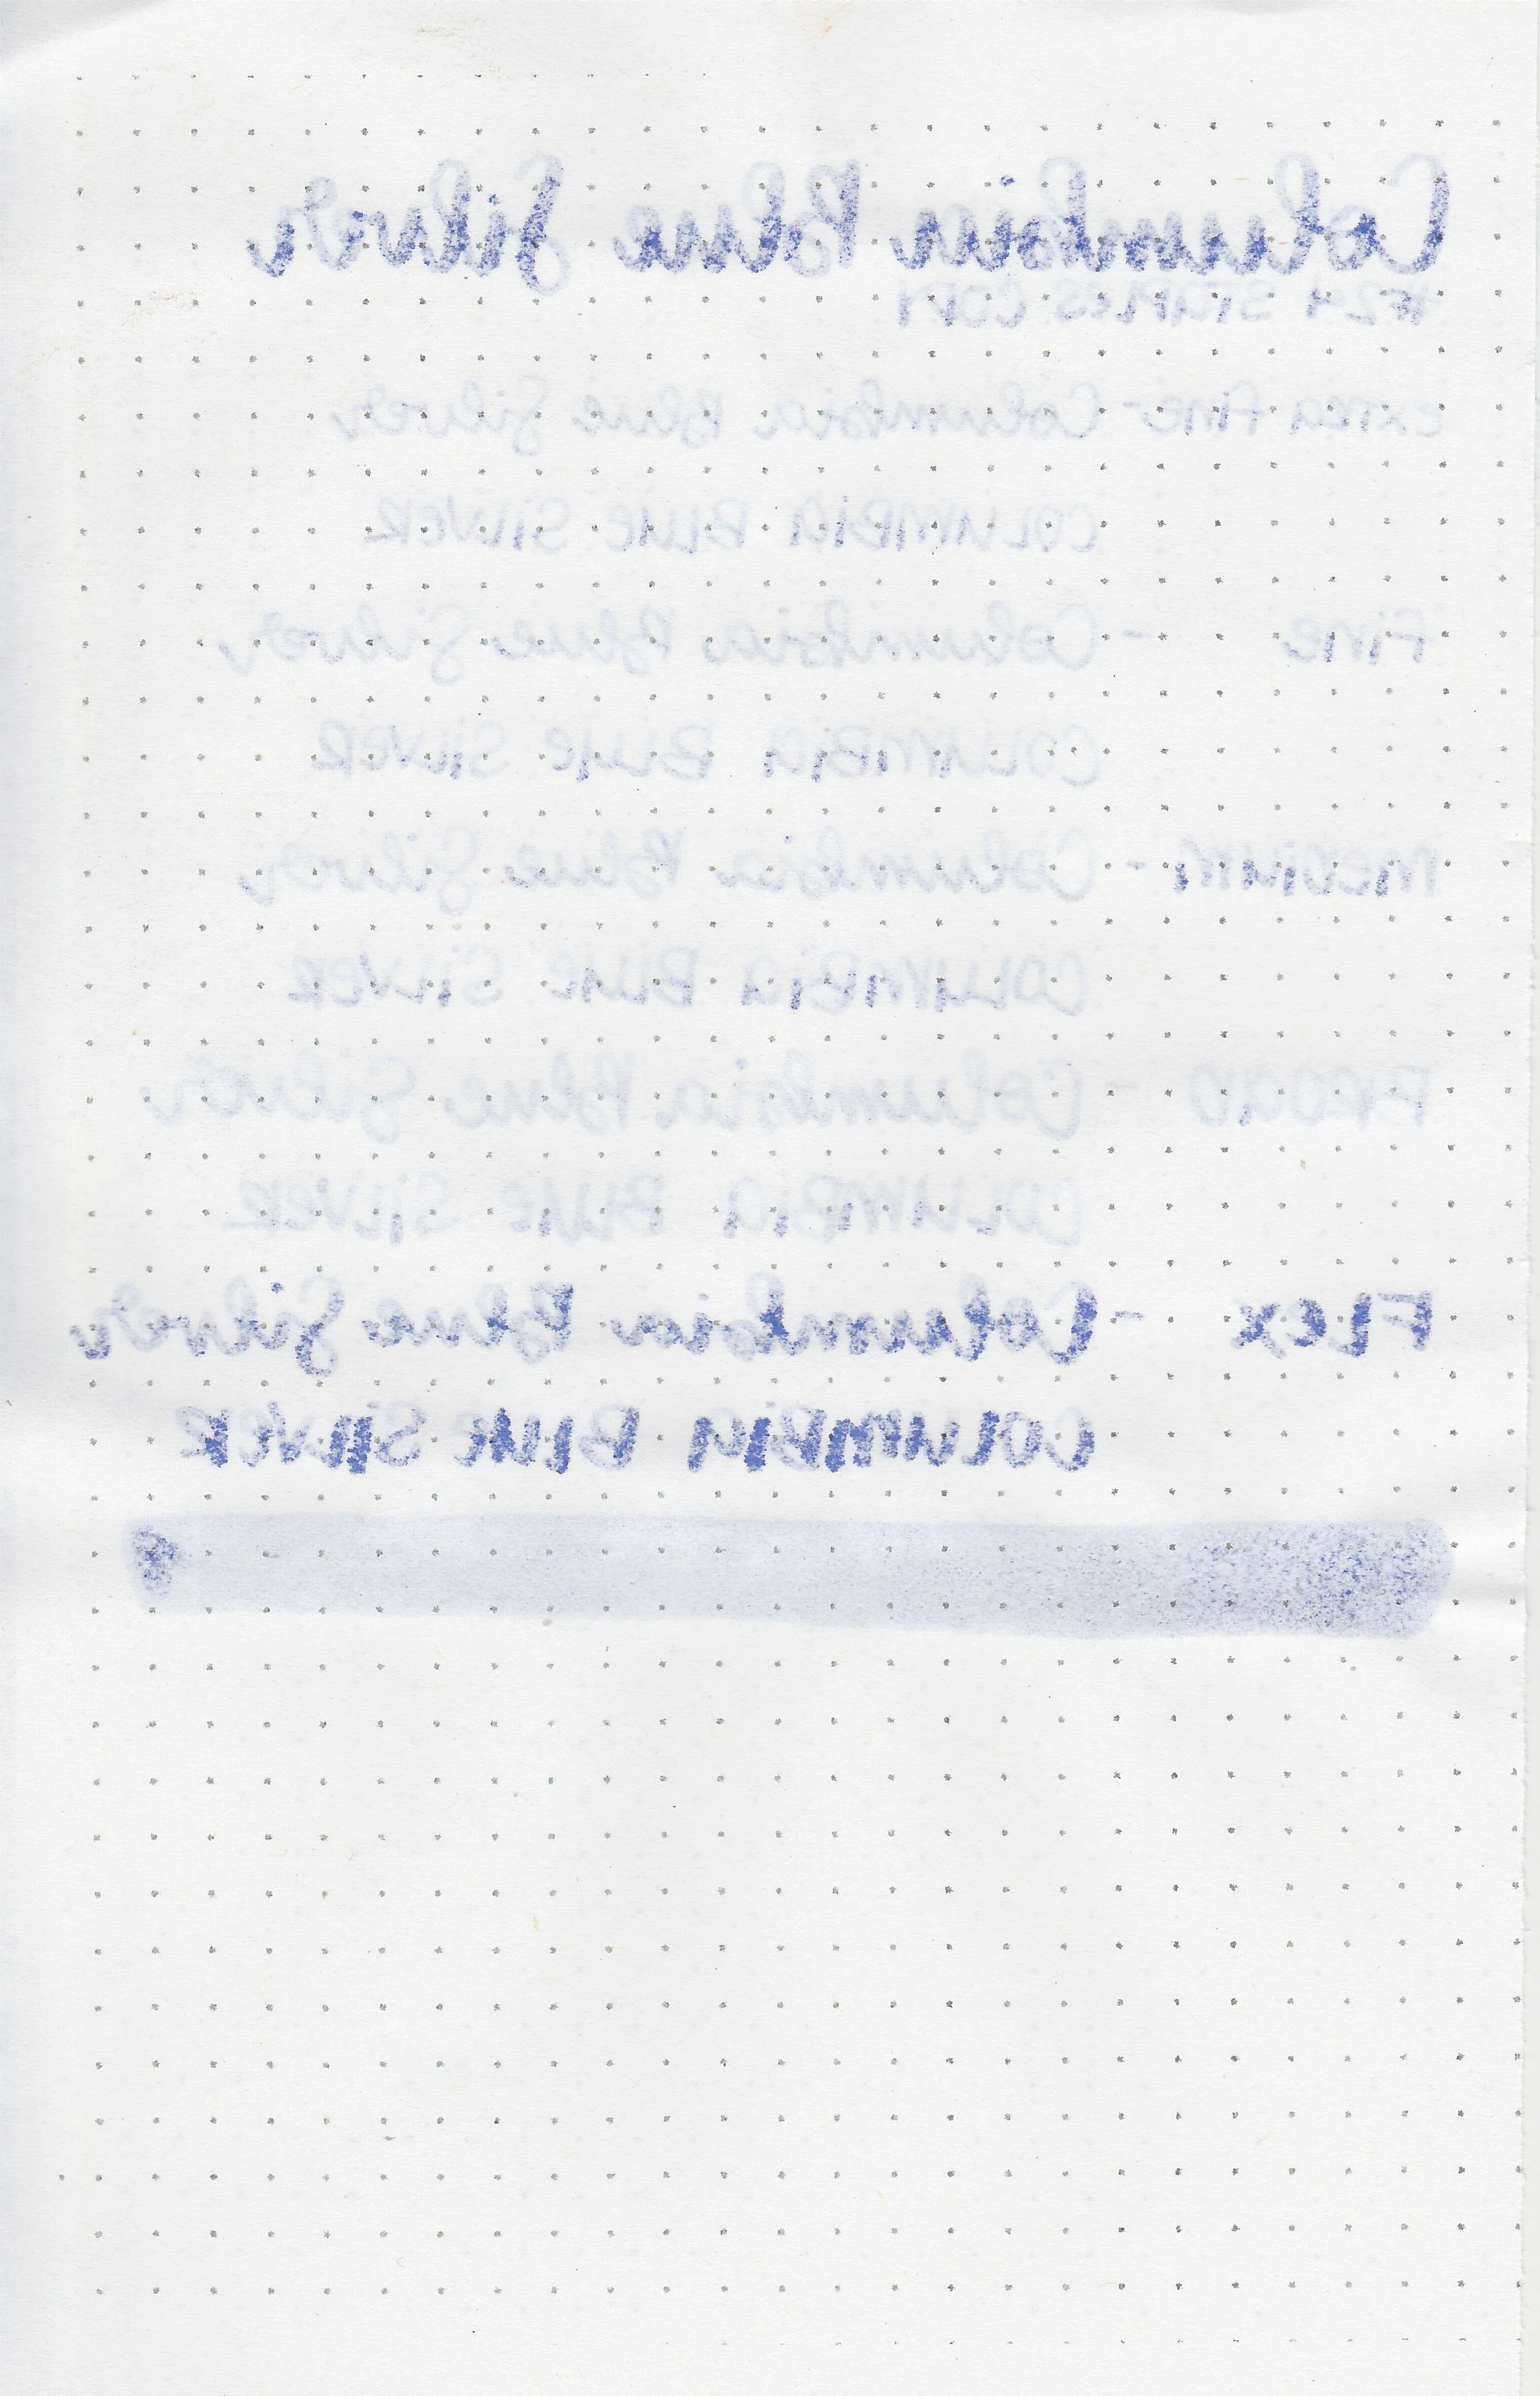 Columbia Blue Silver
#24 STAPLES COPY
EXTRA FINE - Columbia Blue Silver
COLUMBIA BLUE SILVER
FINE - Columbia Blue Silver
COLUMBIA BLUE SILVER
MEDIUM - Columbia Blue Silver
COLUMBIA BLUE SILVER
BROAD - Columbia Blue Silver
COLUMBIA BLUE SILVER
FLEX - Columbia Blue Silver
COLUMBIA BLUE SILVER